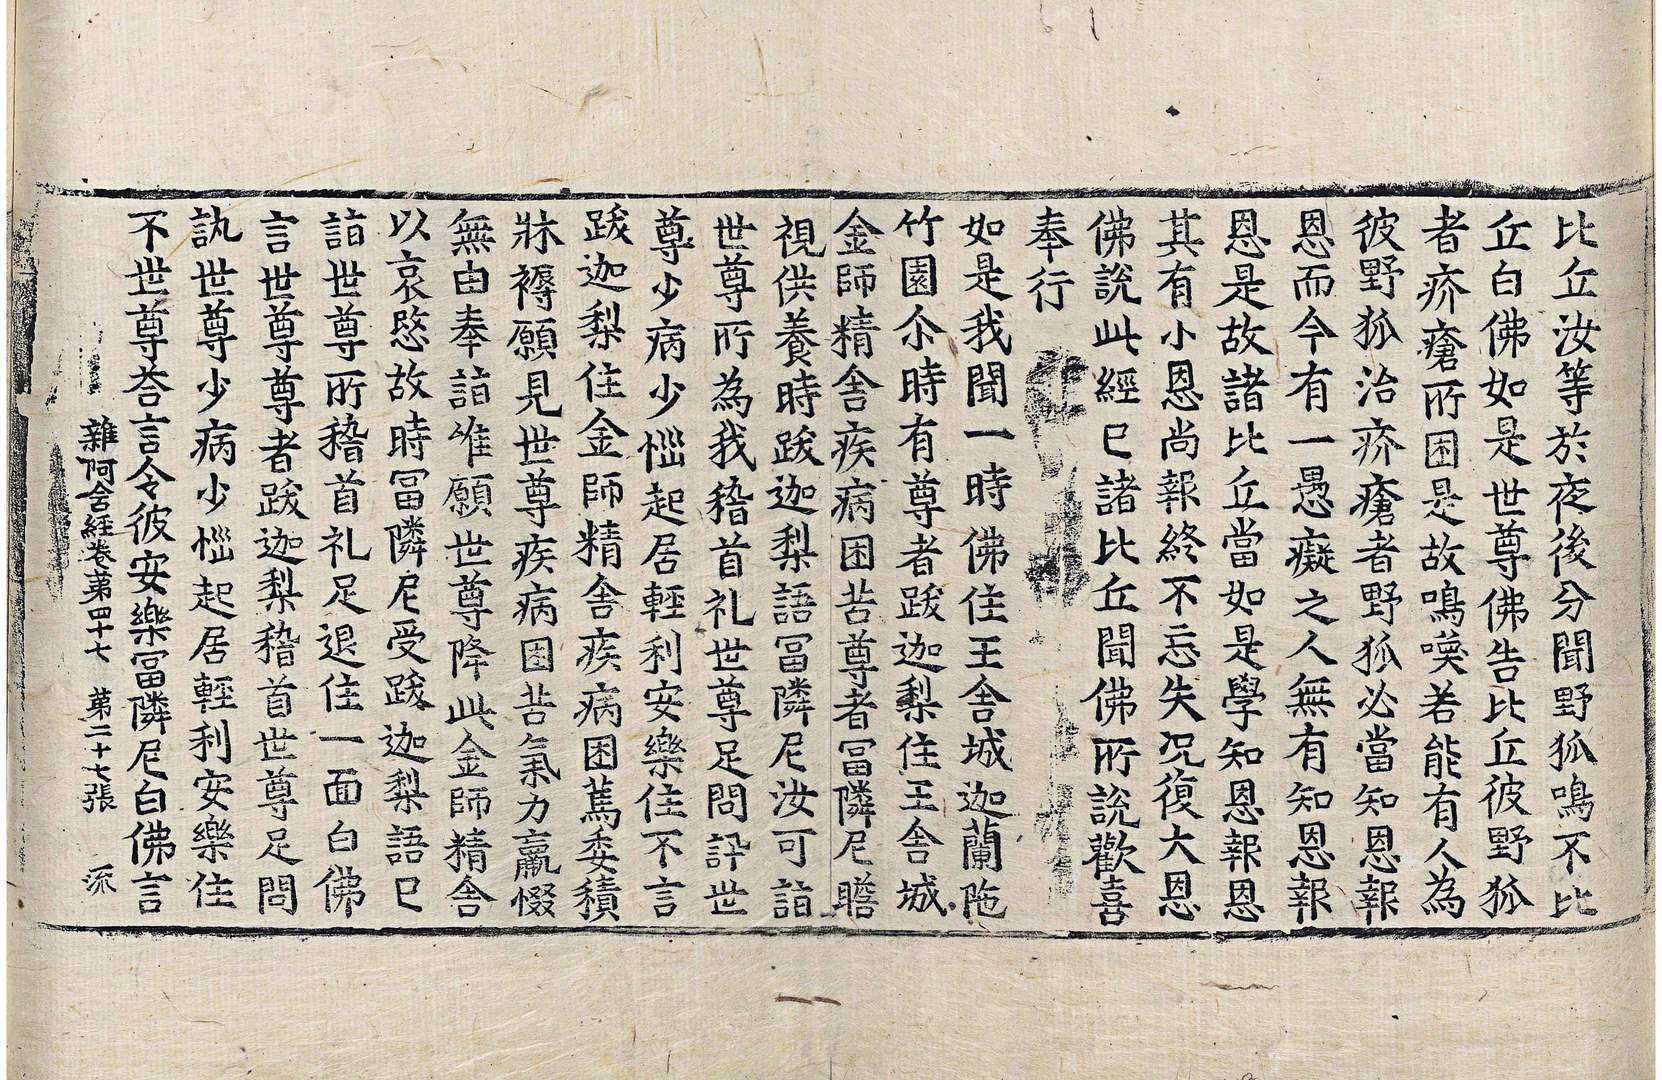 比丘汝等於夜後分聞野狐鳴不比
丘白佛如是世尊佛告比丘彼野狐
者疥瘡所困是故鳴喚若能有人為
彼野狐治疥瘡者野狐必當知恩報
恩而今有一愚癡之人無有知恩報
恩是故諸比丘當如是學知恩報恩
其有小恩尚報終不忘失況復大恩
佛說此經已諸比丘聞佛所說歡喜
奉行
如是我聞一時佛住王舍城迦蘭陁
竹園尒時有尊者跋迦梨住王舍城
金師精舍疾病困苦尊者冨隣尼瞻
視供養時跋迦梨語冨隣尼汝可詣
世尊所為我稽首礼世尊足問訊世
尊少病少惱起居輕利安樂住不言
跋迦梨住金師精舍疾病困篤委積
牀褥願見世尊疾病困苦氣力羸惙
無由奉詣唯願世尊降此金師精舍
以哀愍故時冨隣尼受跋迦梨語已
詣世尊所稽首礼足退住一面白佛
言世尊尊者跋迦梨稽首世尊足問
訊世尊少病少惱起居輕利安樂住
不世尊荅言令彼安樂冨隣尼白佛言
雜阿含經卷第四十七 第二十七張 流